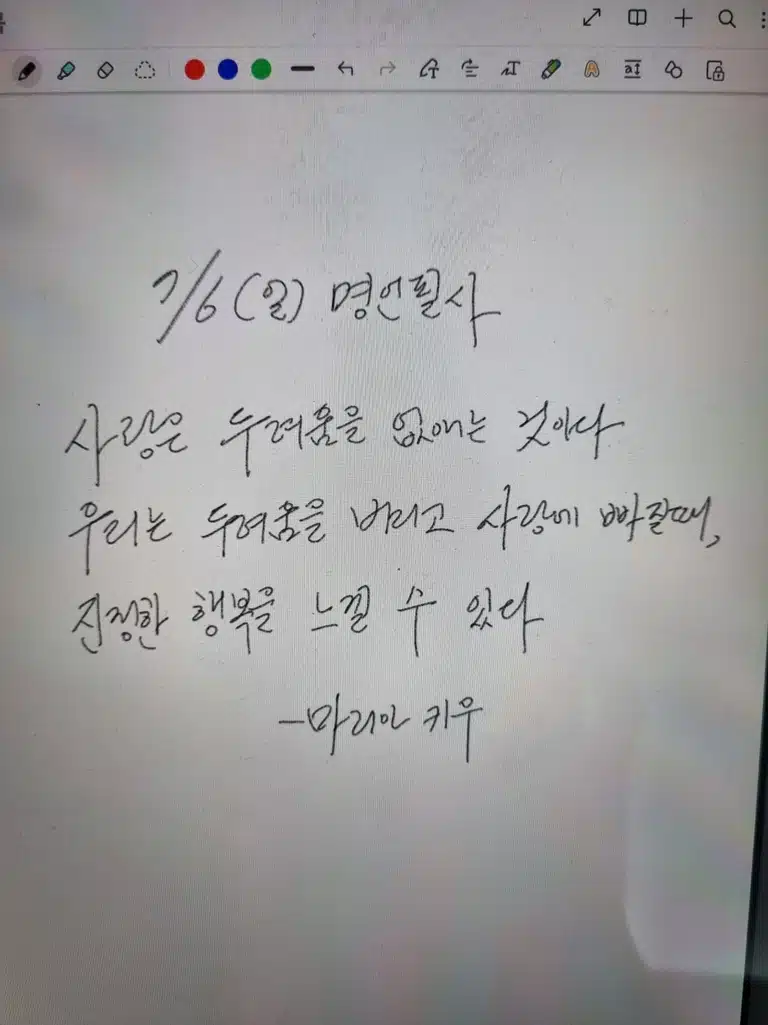 7/6 (일) 명언필사
사랑은 두려움을 없애는 것이다
우리는 두려움을 버리고 사랑에 빠질때,
진정한 행복을 느낄 수 있다
-마리아 키우